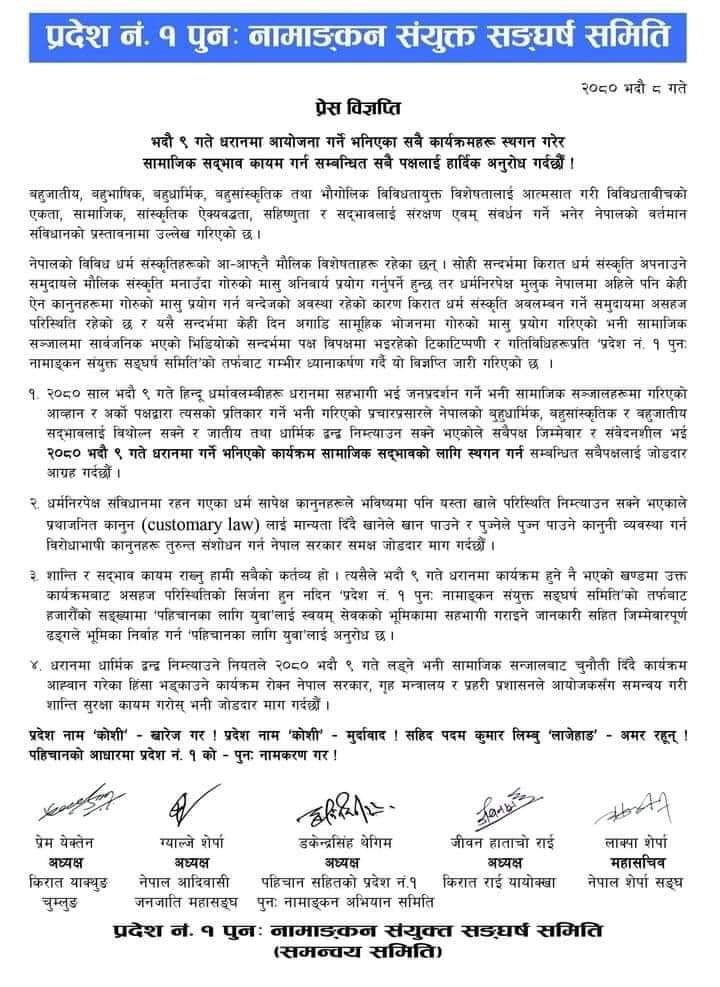 प्रदेश नं. १ पुनः नामाङ्कन संयुक्त सङ्घर्ष समिति
२०८० भदौ ८ गते
प्रेस विज्ञप्ति
भदौ ९ गते धरानमा आयोजना गर्ने भनिएका सबै कार्यक्रमहरू स्थगन गरेर
सामाजिक सद्‌भाव कायम गर्न सम्बन्धित सबै पक्षलाई हार्दिक अनुरोध गर्दछौं !
बहुजातीय, बहुभाषिक, बहुधार्मिक, बहुसांस्कृतिक तथा भौगोलिक विविधतायुक्त विशेषतालाई आत्मसात गरी विविधताबीचको
एकता, सामाजिक, सांस्कृतिक ऐक्यवद्धता, सहिष्णुता र सद्‌भावलाई संरक्षण एवम् संवर्धन गर्ने भनेर नेपालको वर्तमान
संविधानको प्रस्तावनामा उल्लेख गरिएको छ ।
नेपालको विविध धर्म संस्कृतिहरूको आ-आफ्नै मौलिक विशेषताहरू रहेका छन् । सोही सन्दर्भमा किरात धर्म संस्कृति अपनाउने
समुदायले मौलिक संस्कृति मनाउँदा गोरुको मासु अनिवार्य प्रयोग गर्नुपर्ने हुन्छ तर धर्मनिरपेक्ष मुलुक नेपालमा अहिले पनि केही
ऐन कानुनहरूमा गोरुको मासु प्रयोग गर्न बन्देजको अवस्था रहेको कारण किरात धर्म संस्कृति अवलम्बन गर्ने समुदायमा असहज
परिस्थिति रहेको छ र यसै सन्दर्भमा केही दिन अगाडि सामूहिक भोजनमा गोरुको मासु प्रयोग गरिएको भनी सामाजिक
सञ्जालमा सार्वजनिक भएको भिडियोको सन्दर्भमा पक्ष विपक्षमा भइरहेको टिकाटिप्पणी र गतिविधिहरूप्रति 'प्रदेश नं. १ पुनः
नामाङ्कन संयुक्त सङ्घर्ष समिति'को तर्फबाट गम्भीर ध्यानाकर्षण गर्दै यो विज्ञप्ति जारी गरिएको छ ।
१. २०८० साल भदौ ९ गते हिन्दू धर्मावलम्बीहरू धरानमा सहभागी भई जनप्रदर्शन गर्ने भनी सामाजिक सञ्जालहरूमा गरिएको
आव्हान र अर्को पक्षद्वारा त्यसको प्रतिकार गर्ने भनी गरिएको प्रचारप्रसारले नेपालको बुहुधार्मिक, बहुसांस्कृतिक र बहुजातीय
सद्‌भावलाई विथोल्न सक्ने र जातीय तथा धार्मिक द्वन्द्व निम्त्याउन सक्ने भएकोले सबैपक्ष जिम्मेवार र संवेदनशील भई
२०८० भदौ ९ गते धरानमा गर्ने भनिएको कार्यक्रम सामाजिक सद्‌भावको लागि स्थगन गर्न सम्बन्धित सबैपक्षलाई जोडदार
आग्रह गर्दछौं ।
२. धर्मनिरपेक्ष संविधानमा रहन गएका धर्म सापेक्ष कानुनहरूले भविष्यमा पनि यस्ता खाले परिस्थिति निम्त्याउन सक्ने भएकाले
प्रथाजनित कानुन (customary law) लाई मान्यता दिँदै खानेले खान पाउने र पुज्नेले पुज्न पाउने कानुनी व्यवस्था गर्न
विरोधाभाषी कानुनहरू तुरुन्त संशोधन गर्न नेपाल सरकार समक्ष जोडदार माग गर्दछौं ।
३. शान्ति र सद्‌भाव कायम राख्नु हामी सबैको कर्तव्य हो । त्यसैले भदौ ९ गते धरानमा कार्यक्रम हुने नै भएको खण्डमा उक्त
कार्यक्रमबाट असहज परिस्थितिको सिर्जना हुन नदिन 'प्रदेश नं. १ पुनः नामाङ्कन संयुक्त सङ्घर्ष समिति'को तर्फबाट
हजारौंको सङ्ख्यामा 'पहिचानका लागि युवा'लाई स्वयम् सेवकको भूमिकामा सहभागी गराइने जानकारी सहित जिम्मेवारपूर्ण
ढङ्गले भूमिका निर्वाह गर्न 'पहिचानका लागि युवा'लाई अनुरोध छ ।
४. धरानमा धार्मिक द्वन्द्व निम्त्याउने नियतले २०८० भदौ ९ गते लड्ने भनी सामाजिक सन्जालबाट चुनौती दिँदै कार्यक्रम
आह्वान गरेका हिंसा भड्काउने कार्यक्रम रोक्न नेपाल सरकार, गृह मन्त्रालय र प्रहरी प्रशासनले आयोजकसँग समन्वय गरी
शान्ति सुरक्षा कायम गरोस् भनी जोडदार माग गर्दछौं ।
प्रदेश नाम 'कोशी' - खारेज गर ! प्रदेश नाम 'कोशी' - मुर्दावाद ! सहिद पदम कुमार लिम्बु 'लाजेहाङ' - अमर रहून् !
पहिचानको आधारमा प्रदेश नं. १ को - पुनः नामकरण गर !
प्रेम येक्तेन ग्याल्जे शेर्पा डकेन्द्रसिंह थेगिम जीवन हाताचो राई लाक्पा शेर्पा
अध्यक्ष अध्यक्ष अध्यक्ष अध्यक्ष महासचिव
किरात याक्थुङ नेपाल आदिवासी पहिचान सहितको प्रदेश नं.१ किरात राई यायोक्खा नेपाल शेर्पा सङ्घ
चुम्लुङ जनजाति महासङ्घ पुनः नामाङ्कन अभियान समिति
प्रदेश नं. १ पुनः नामाङ्कन संयुक्त सङ्घर्ष समिति
(समन्वय समिति)